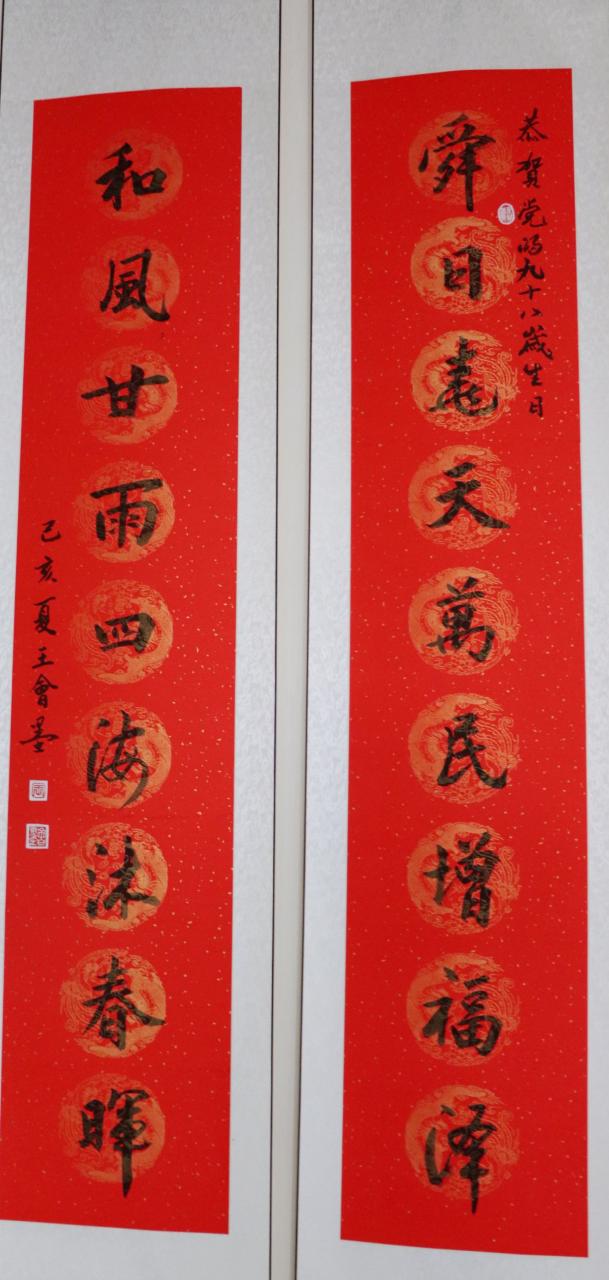 恭贺党的九十八岁生日
舜日尧天萬民增福泽
和風甘雨四海沐春暉
己亥夏王會墨